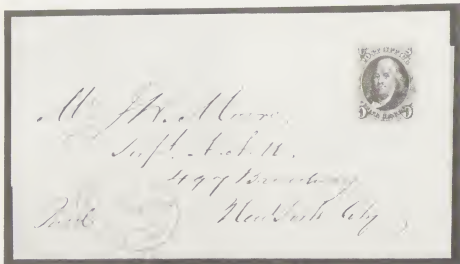 POST OFFICE
FIVE CENTS
5 5
Mr J. W. Moore
Supt.
497 Broadway
New York City
Paid